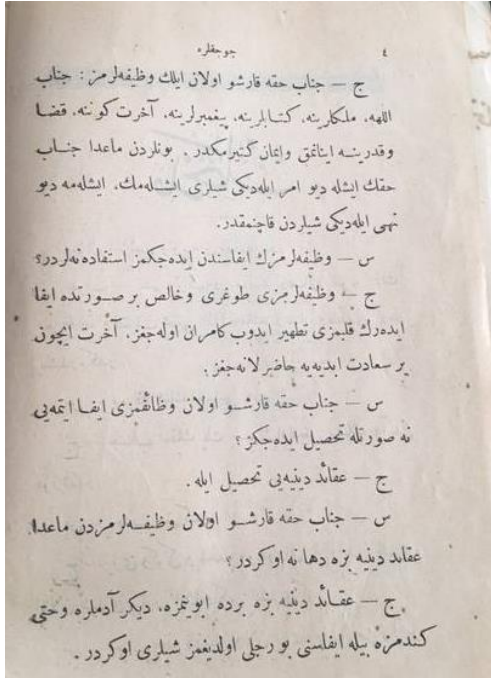 ٤
جوجقلره
ج — جناب حقه قارشو اولان ايلك وظيفه‌لرمز : جناب
اللهه، ملكلرينه، كتابلرينه، پيغمبرلرينه، آخرت كوننه، قضا
وقدرينه اينانمق وايمان كتيرمكدر . بونلردن ماعدا جناب
حقك ايشله ديو امر ايله‌ديكى شيلرى ايشله‌مك، ايشله‌مه ديو
نهى ايله‌ديكى شيلردن قاچنمقدر.
س — وظيفه‌لرمزك ايفاسندن ايده‌جكمز استفاده نه‌لردر؟
ج — وظيفه‌لرمزى طوغرى وخالص بر صورتده ايفا
ايده‌رك قلبمزى تطهير ايدوب كامران اوله‌جغز. آخرت ايچون
بر سعادت ابديه‌يه حاضرلانه‌جغز .
س — جناب حقه قارشو اولان وظائفمزى ايفا ايتمه‌يى
نه صورتله تحصيل ايده‌جكز ؟
ج — عقائد دينيه‌يى تحصيل ايله .
س — جناب حقه قارشو اولان وظيفه‌لرمزدن ماعدا
عقايد دينيه بزه دها نه اوكردر ؟
ج — عقائد دينيه بزه برده ابوينمزه، ديكر آدملره وحتى
كندمزه بيله ايفاسنى بورجلى اولديغمز شيلرى اوكردر .